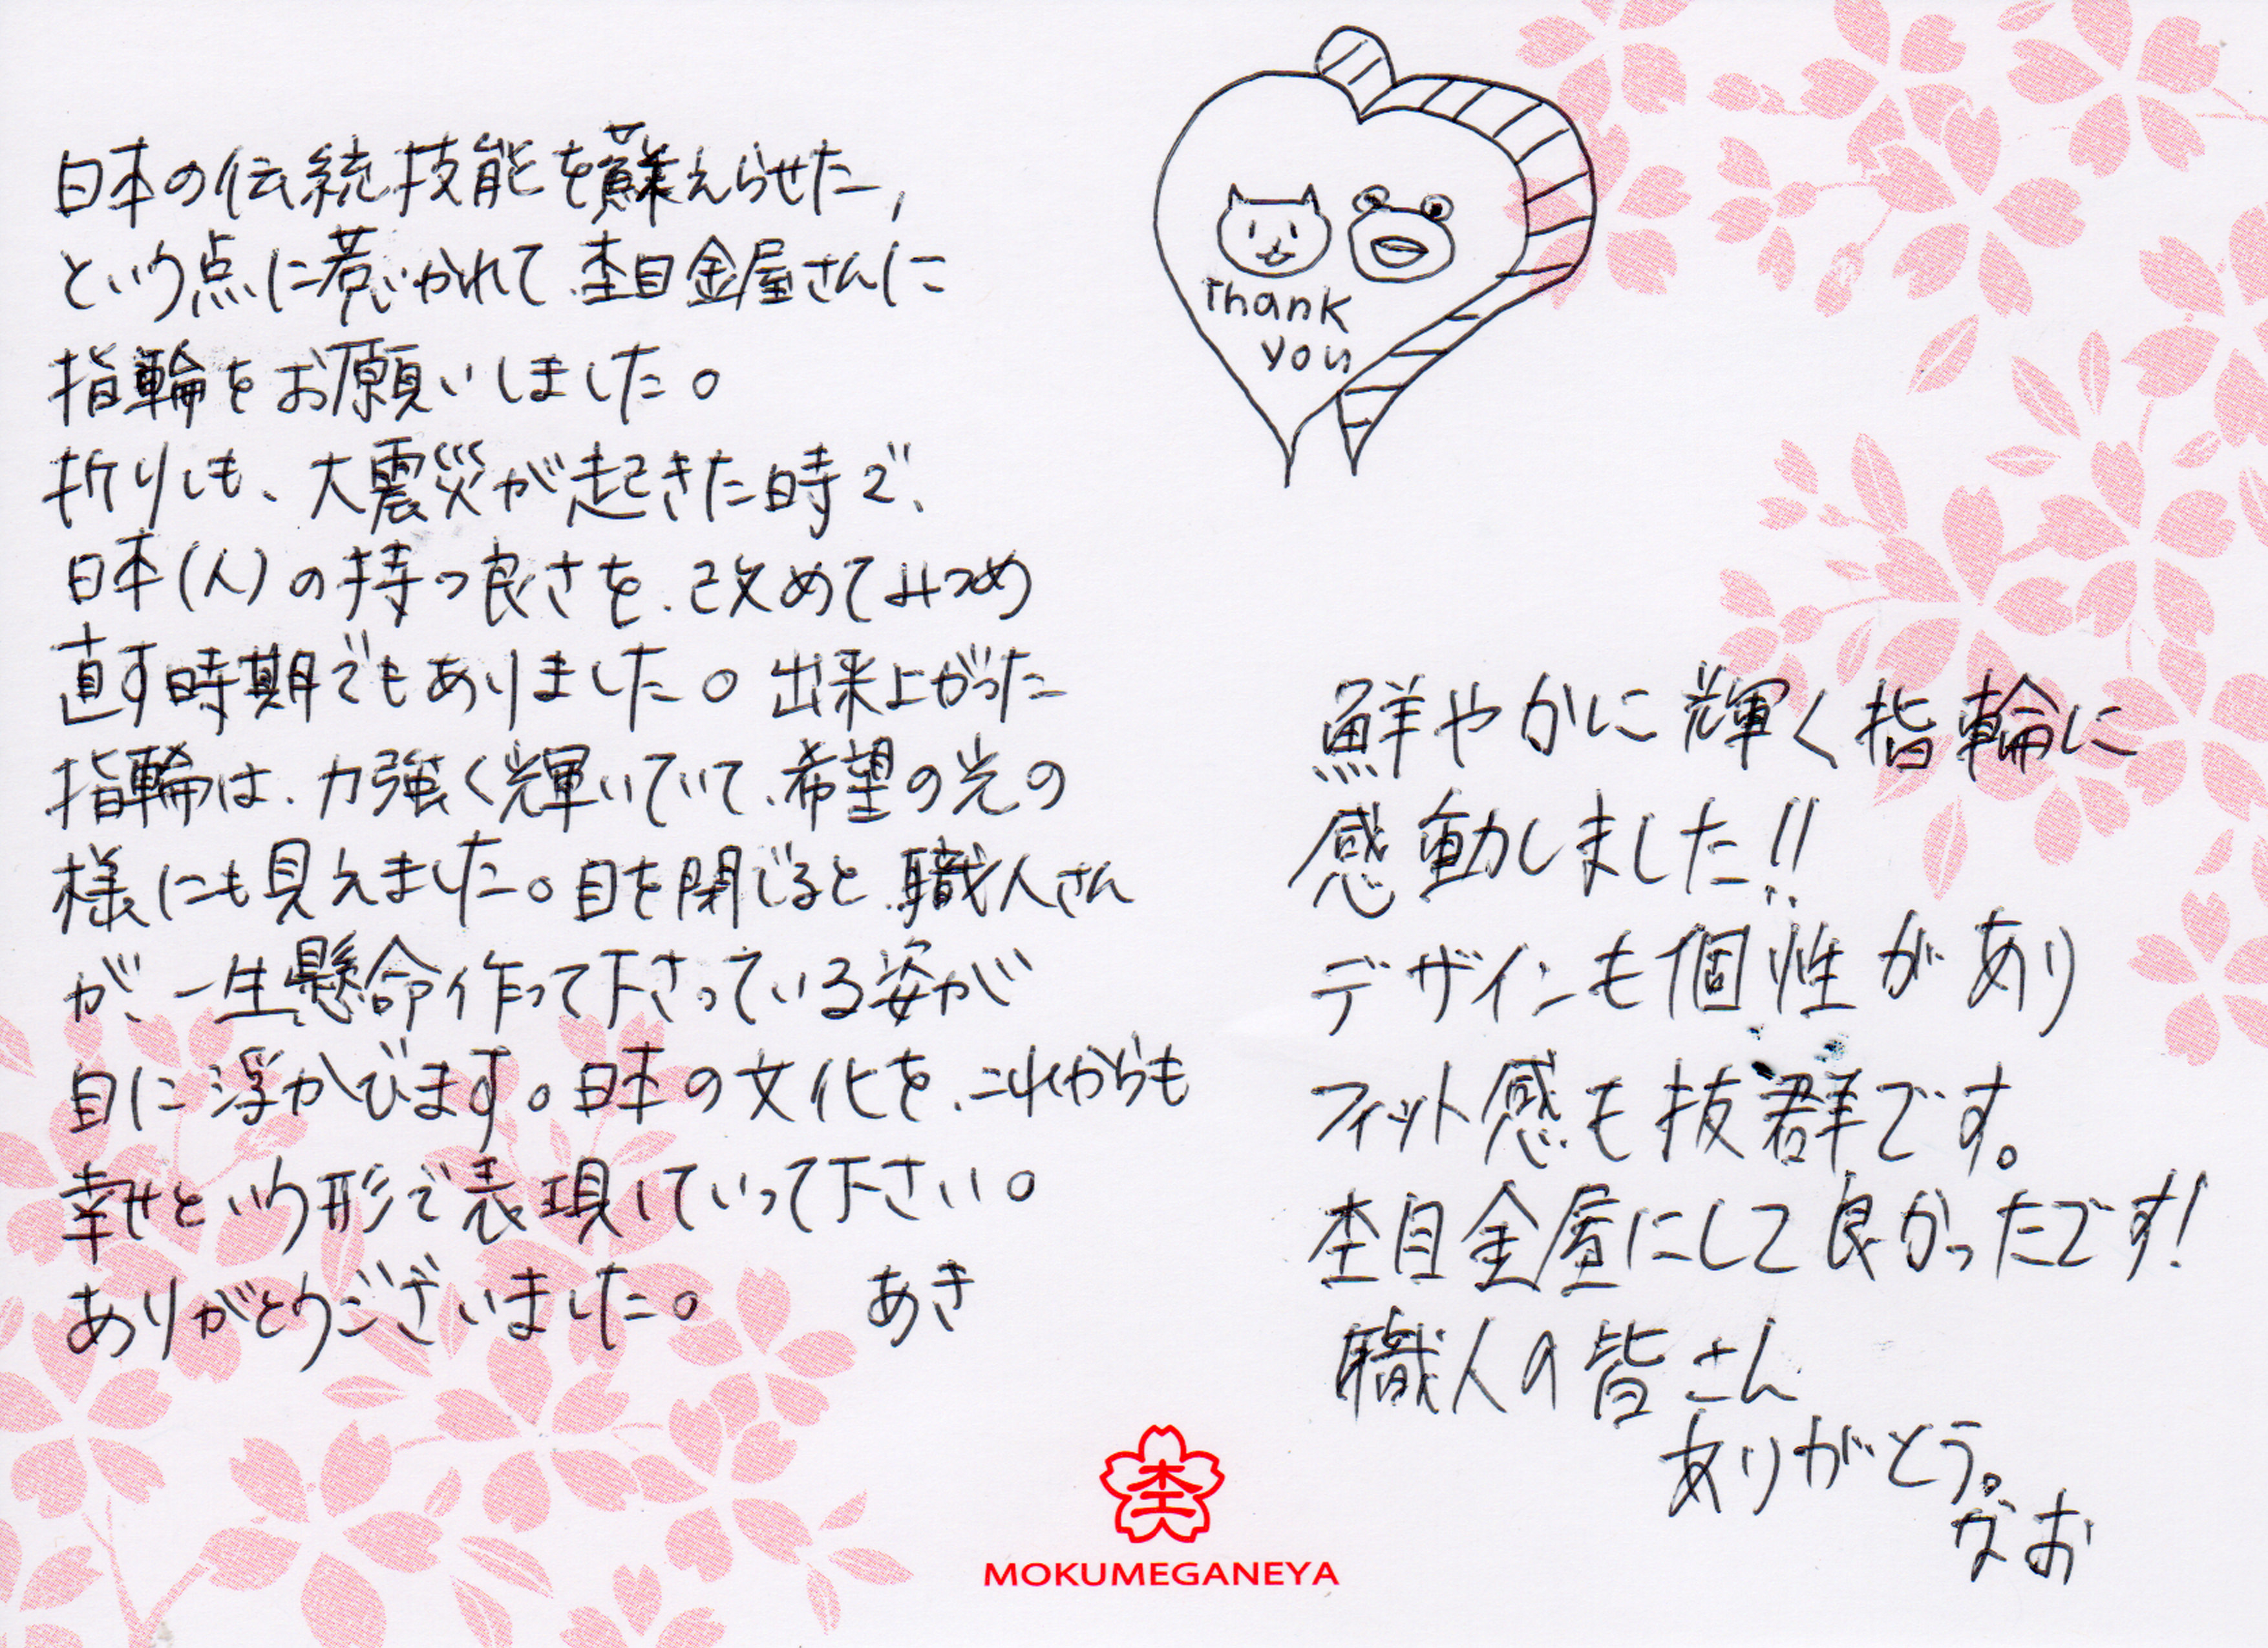 日本の伝統技能を蘇えらせた,
という点に惹かれて、杢目金屋さんに
指輪をお願いしました。
折りしも、大震災が起きた時で、
日本(人)の持つ良さを、改めてみつめ
直す時期でもありました。出来上がった
指輪は、力強く輝いていて、希望の光の
様にも見えました。目を閉じると、職人さん
が、一生懸命作って下さっている姿が
目に浮かびます。日本の文化を、これからも
幸せという形で表現していって下さい。
ありがとうございました。 あき
Thank
you
鮮やかに輝く指輪に
感動しました!!
デザインも個性があり
フィット感も抜群です。
杢目金屋にして良かったです!
職人の皆さん
ありがとう。
なお
杢
MOKUMEGANEYA